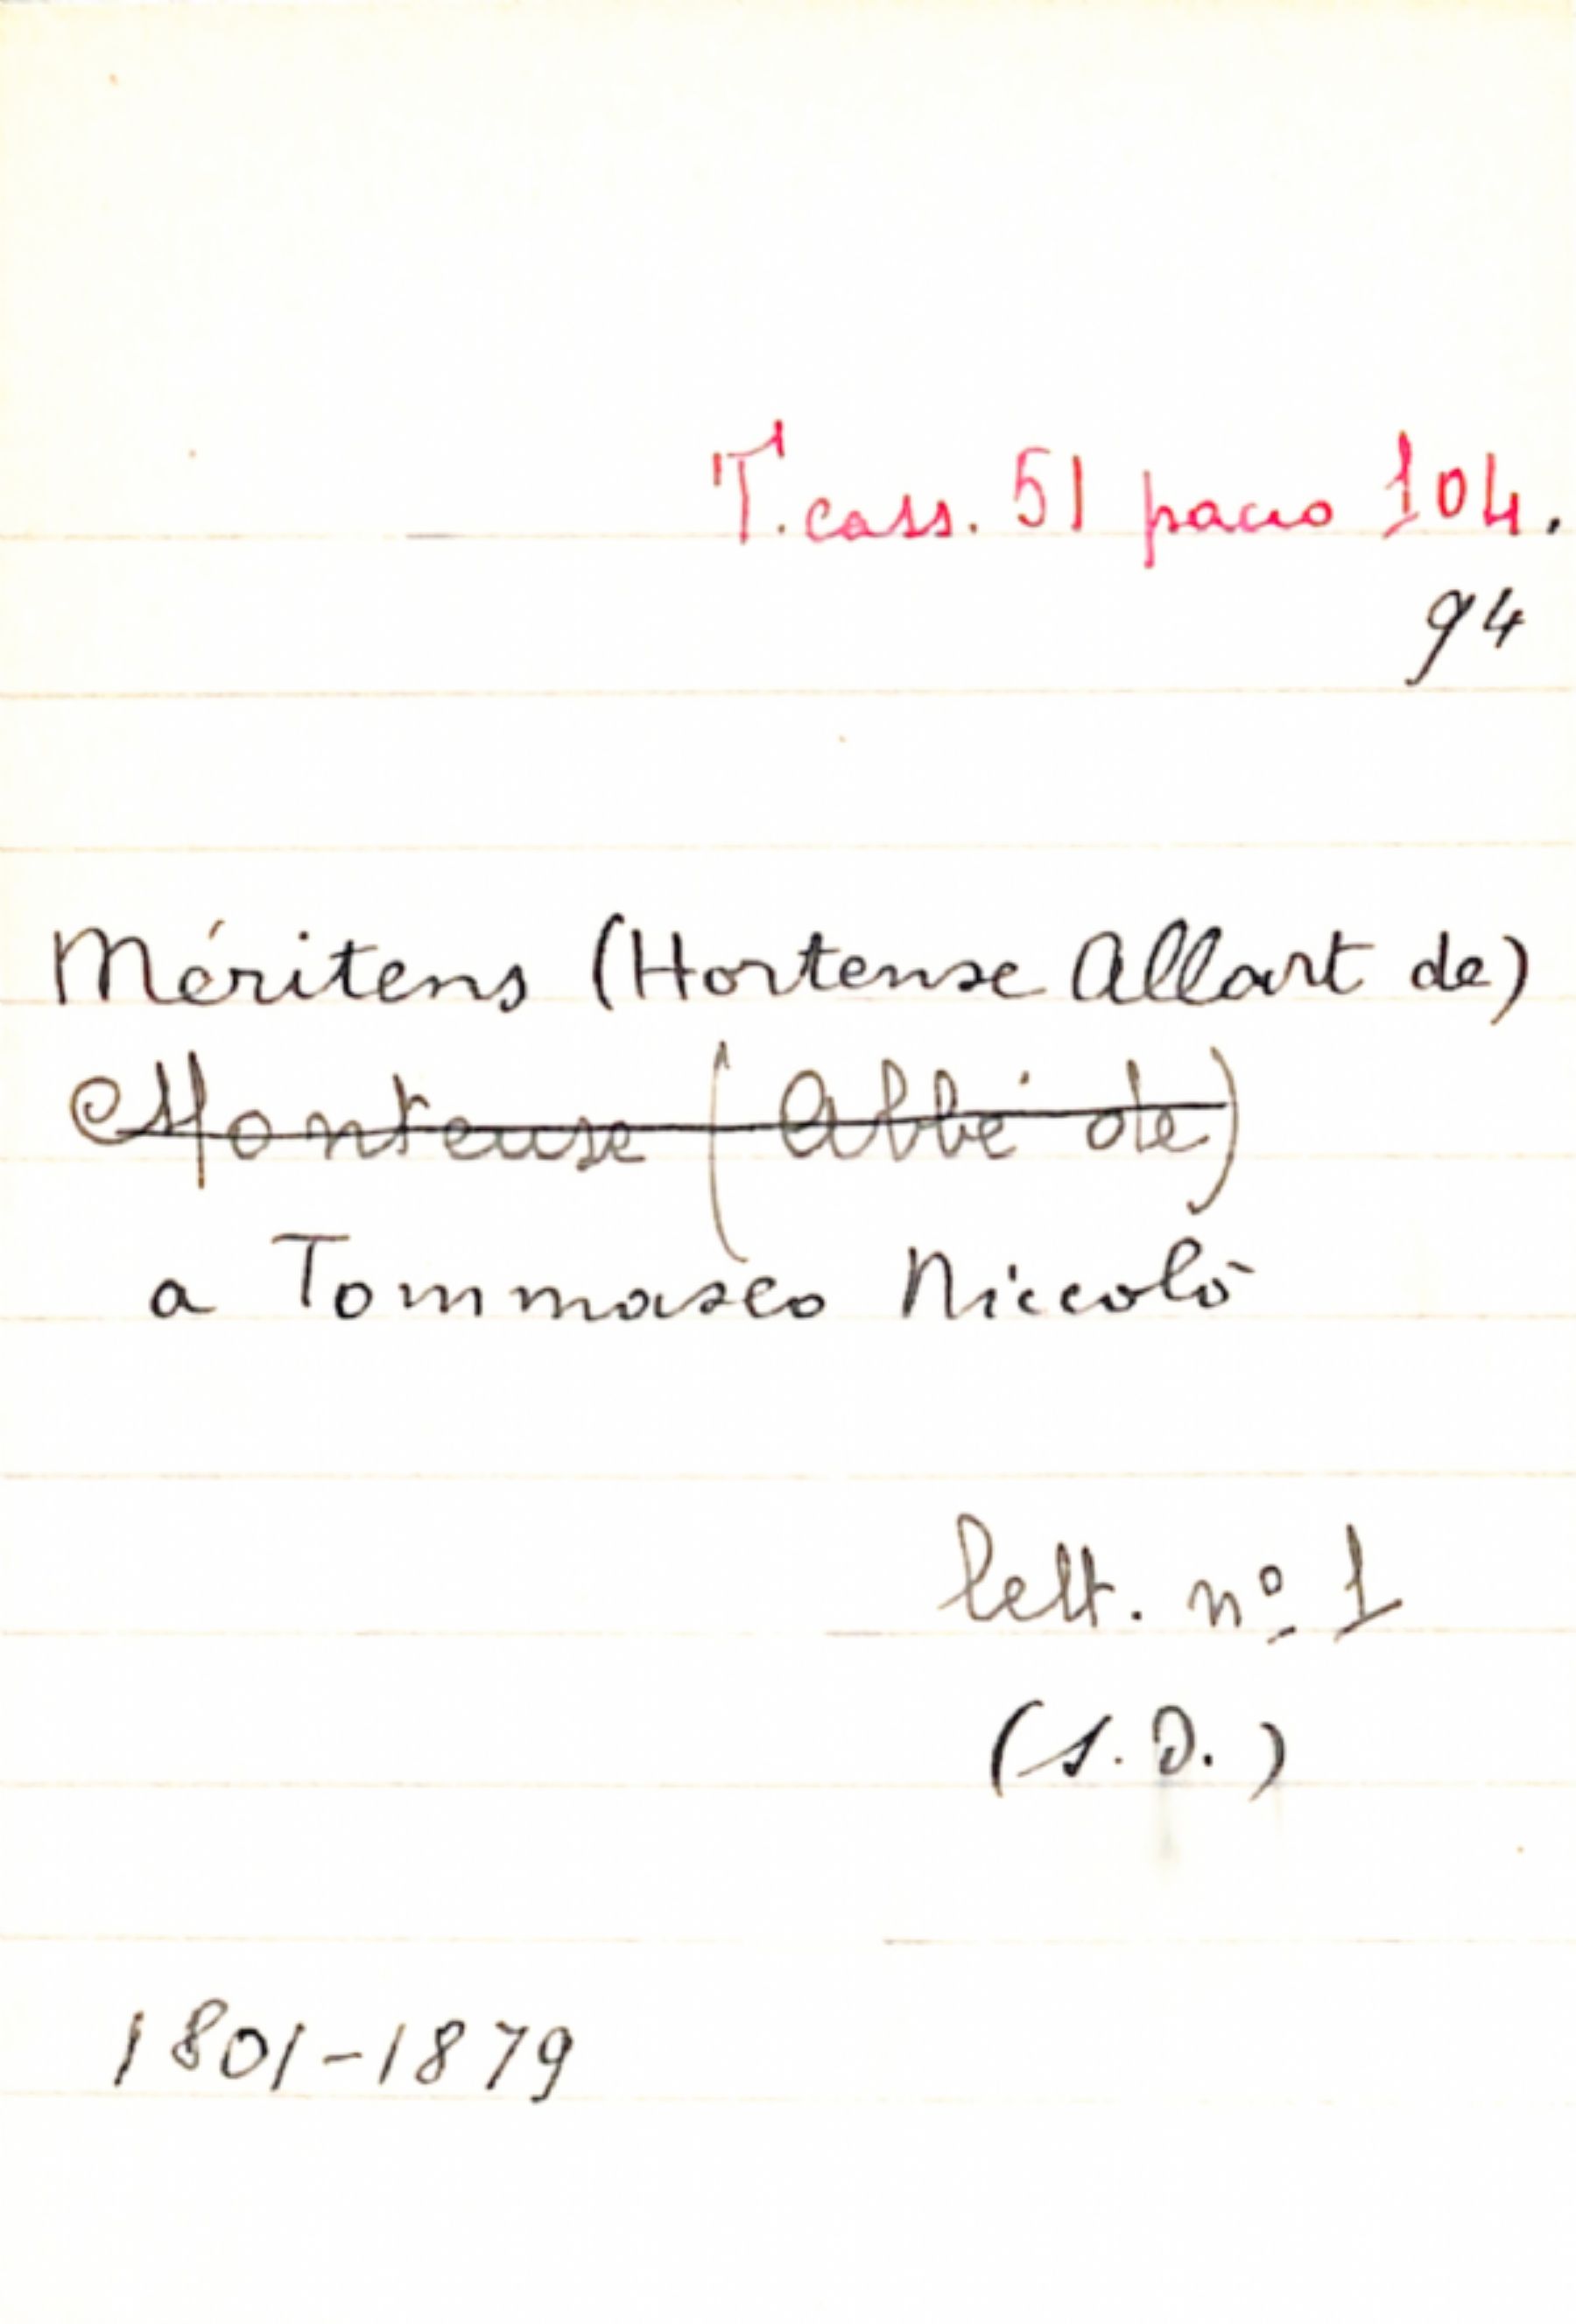 T. cass. 51 pacco 104.
94
Méritens (Hortense Allart de)
Monteuse (Abbé de)
a Tommaseo Niccolò
lett. nº 1
(S.D.)
1801-1879